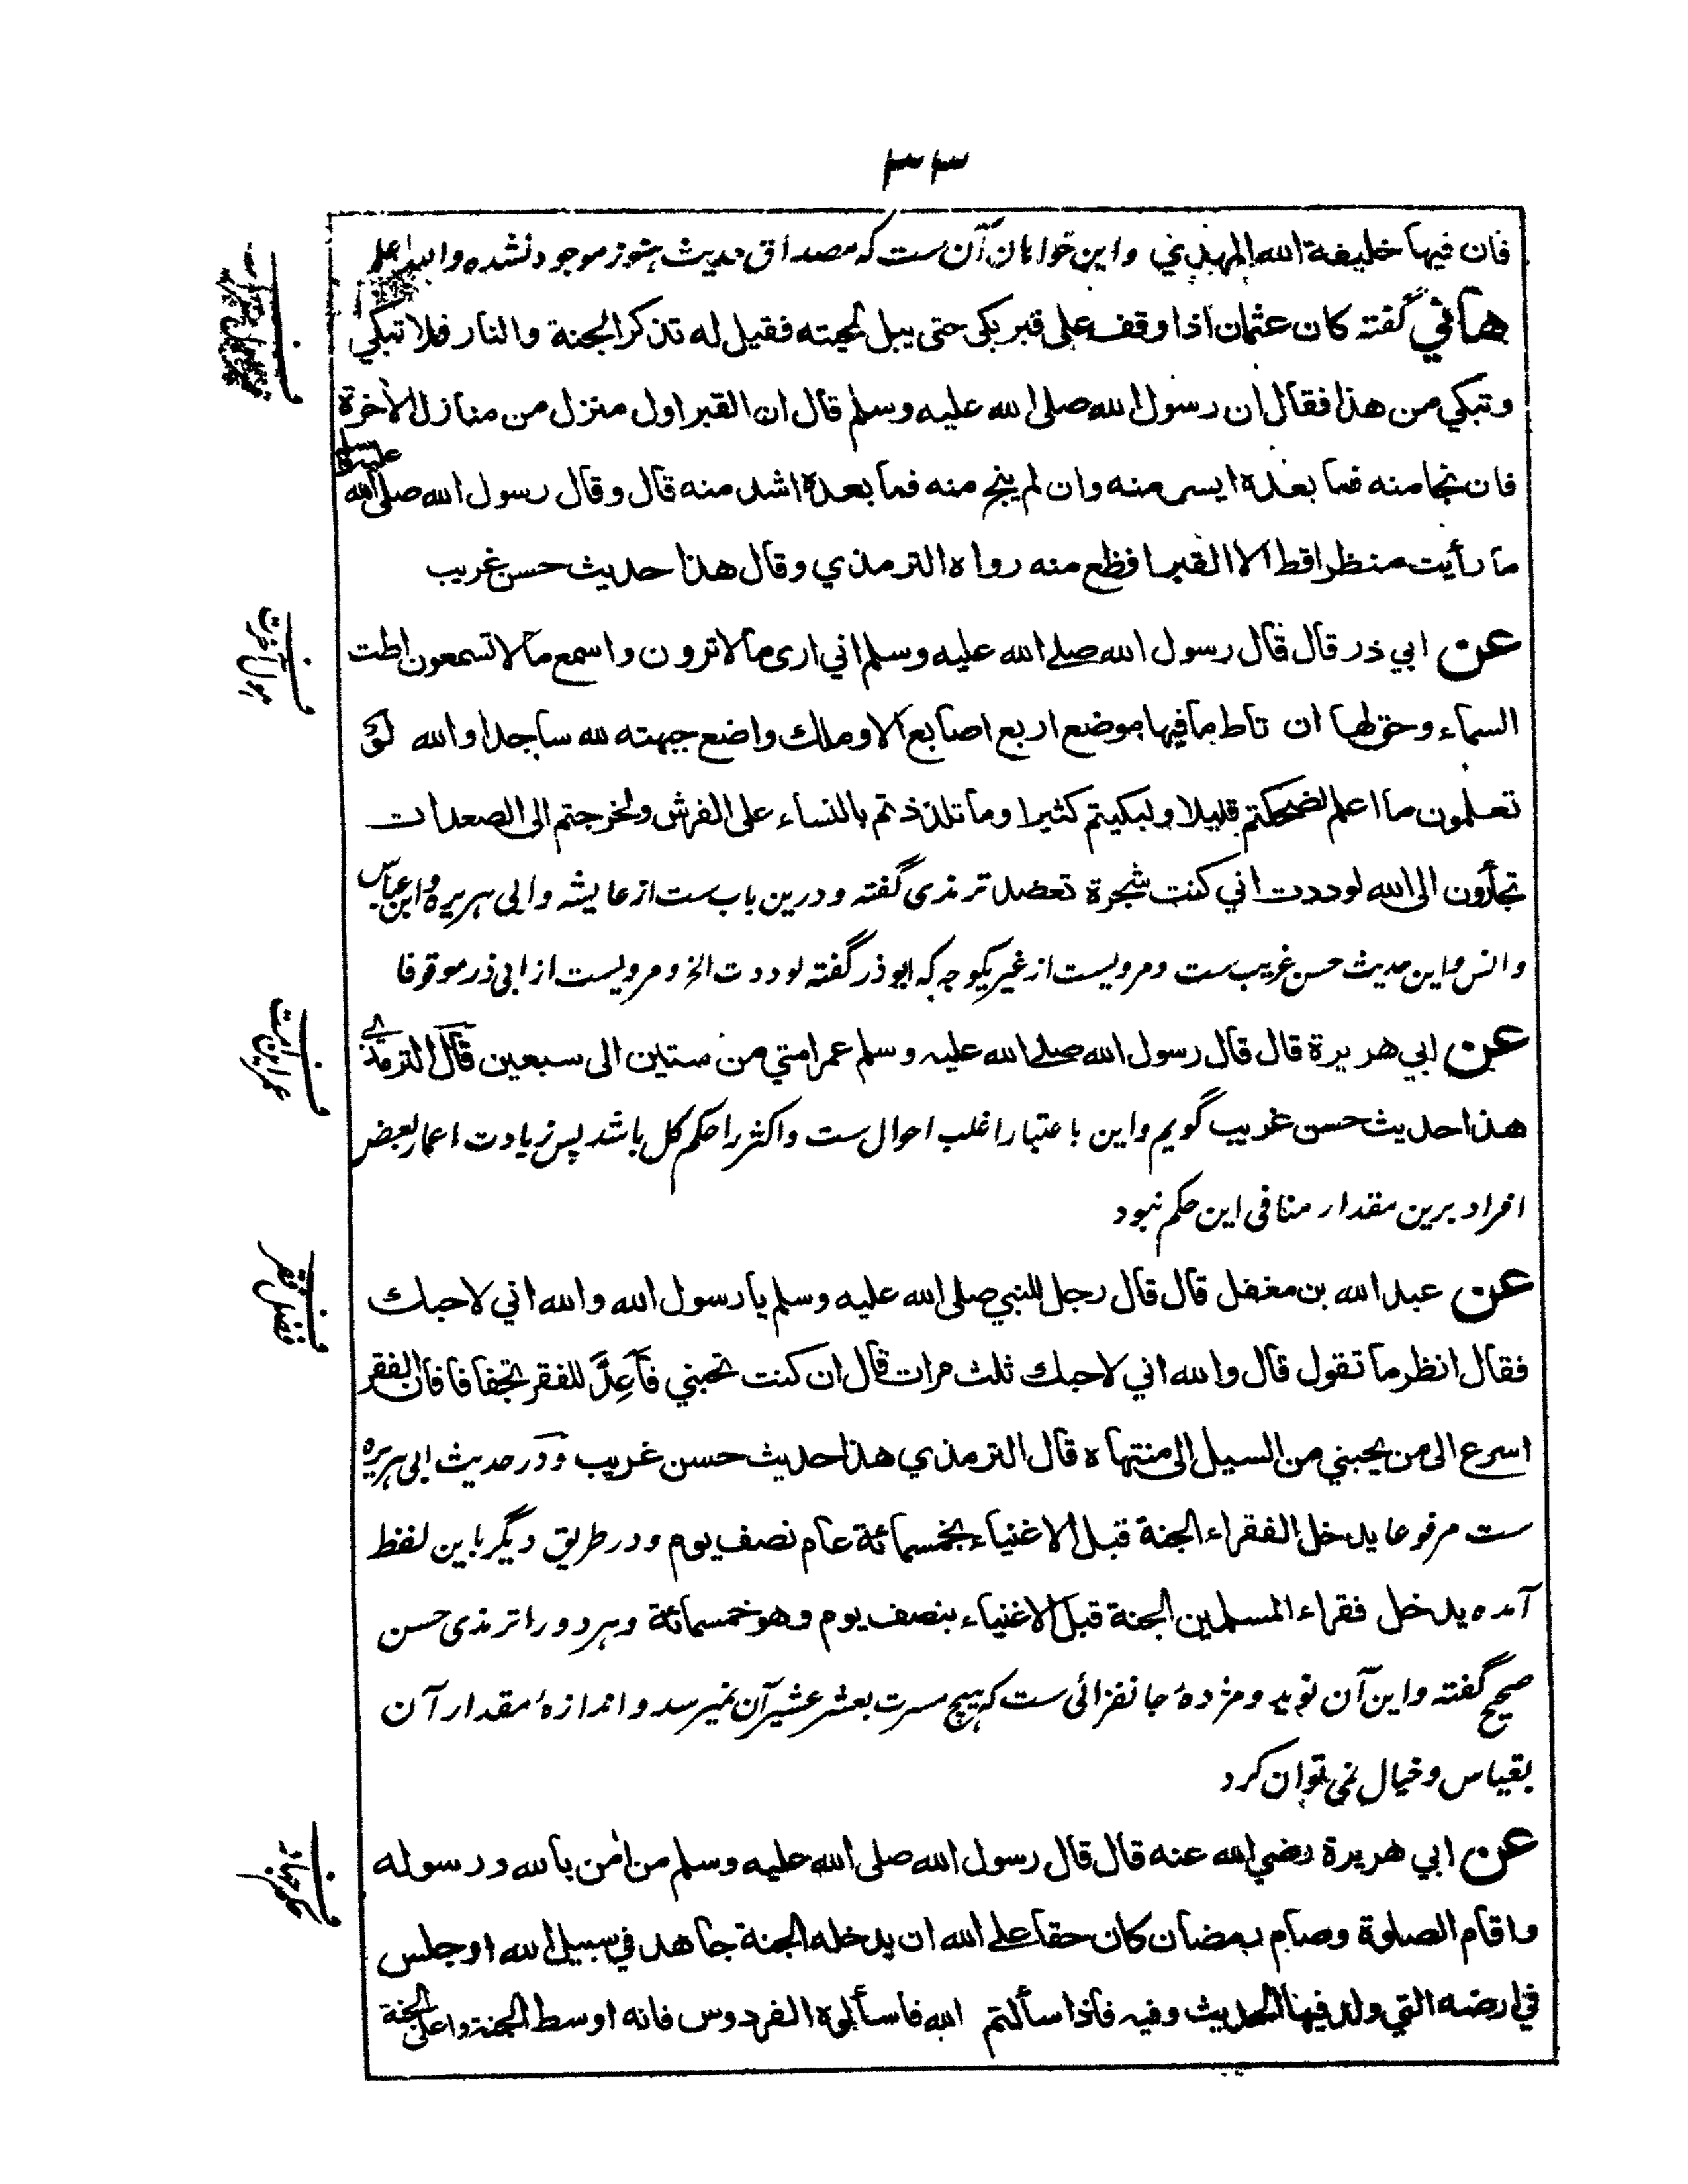 ۳۳
فان فيها خليفة الله المهدي واین خواہان آن ست کہ مصداق حدیث ہنوز موجود نشدہ واللہ اعلم
هاني گفته كان عثمان اذا وقف على قبر بكى حتى يبل لحيته فقيل له تذكر الجنة والنار فلا تبكي
وتبكي من هذا فقال ان رسول الله صلى الله عليه وسلم قال ان القبر اول منزل من منازل الآخرة
فان نجا منه فما بعده ايسر منه وان لم ينج منه فما بعده اشد منه قال وقال رسول الله صلى الله عليه وسلم
ما رأيت منظرا قط الا القبر افظع منه رواه الترمذي وقال هذا حديث حسن غريب
عن ابي ذر قال قال رسول الله صلے الله عليه وسلم اني ارى مالا ترون واسمع مالا تسمعون اطت
السماء وحق لها ان تاط ما فيها موضع اربع اصابع الا وملك واضع جبهته لله ساجدا والله لو
تعلمون ما اعلم لضحكتم قليلا ولبكيتم كثيرا وما تلذذتم بالنساء على الفرش ولخرجتم الى الصعدات
تجأرون الى الله لوددت اني كنت شجرة تعضد ترمذی گفتہ ودرین باب ست از عایشہ وابی ہریرہ وابن عباس
وانس واین حدیث حسن غریب ست ومرویست از غیر یکوجہ کہ ابوذر گفتہ لوددت الخ ومرویست از ابی ذر موقوفا
عن ابي هريرة قال قال رسول الله صلے الله عليه وسلم عمر امتي من ستين الى سبعين قال الترمذي
هذا حديث حسن غريب گویم واین باعتبار اغلب احوال ست واکثر را حکم کل باشد پس زیادت اعمار بعض
افراد برین مقدار منافی این حکم نبود
عن عبد الله بن مغفل قال قال رجل للنبي صلى الله عليه وسلم يا رسول الله والله اني لاحبك
فقال انظر ما تقول قال والله اني لاحبك ثلث مرات قال ان كنت تحبني فَأَعِدَّ للفقر تجفافا فان الفقر
اسرع الى من يحبني من السيل الى منتهاه قال الترمذي هذا حديث حسن غريب ودر حدیث ابی ہریرہ
ست مرفوعا يدخل الفقراء الجنة قبل الاغنياء بخمسمائة عام نصف يوم ودر طریق دیگر باین لفظ
آمدہ يدخل فقراء المسلمين الجنة قبل الاغنياء بنصف يوم وهو خمسمائة وہر دو را ترمذی حسن
صحیح گفتہ واین آن نوید ومژدۂ جانفزائی ست کہ ہیچ مسرت بعشر عشیر آن نمیرسد واندازۂ مقدار آن
بقیاس وخیال نمی توان کرد
عن ابي هريرة رضي الله عنه قال قال رسول الله صلى الله عليه وسلم من امن بالله ورسوله
واقام الصلوة وصام رمضان كان حقا علے الله ان يدخله الجنة جاهد في سبيل الله او جلس
في ارضه التي ولد فيها الحديث وفيه فاذا سألتم الله فاسألوه الفردوس فانه اوسط الجنة واعلى الجنة
ف ہول آخرت
ف عمر این امت
ف فضل فقر